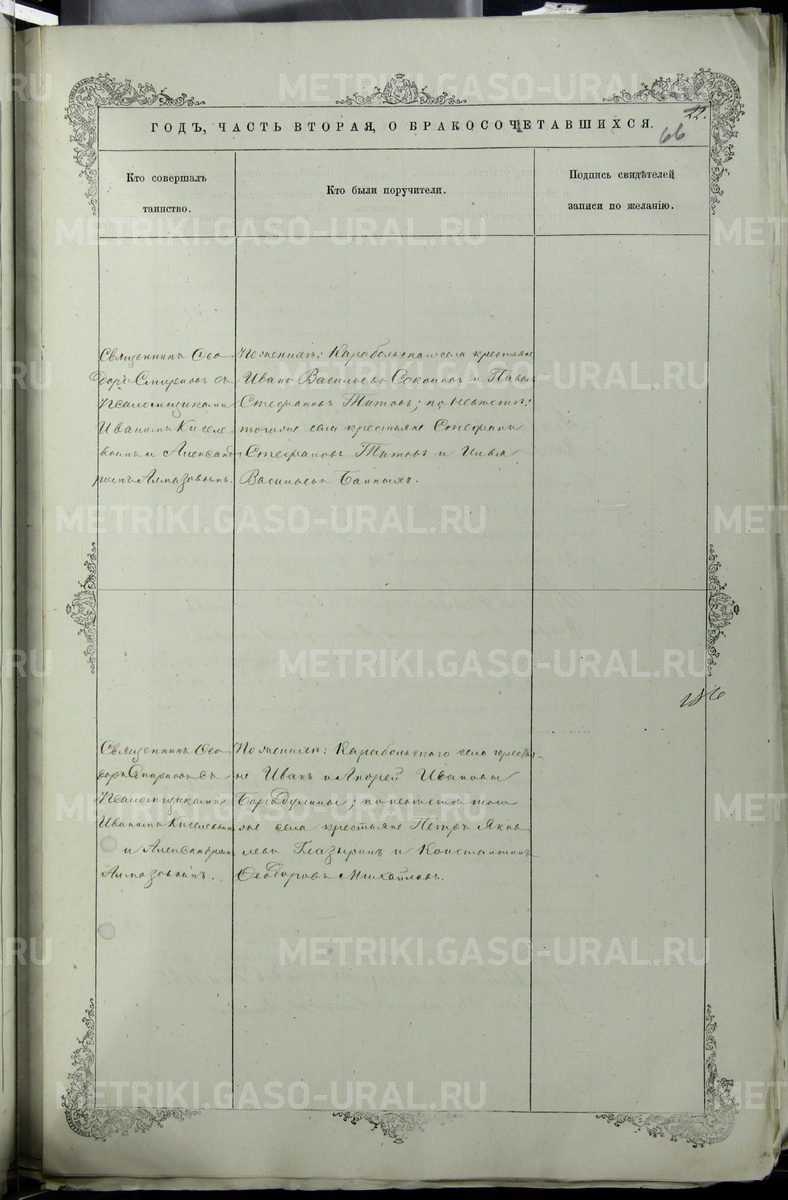 22.
66
ГОДЪ, ЧАСТЬ ВТОРАЯ, О БРАКОСОЧЕТАВШИХСЯ.
Кто совершалъ
таинство.
Кто были поручители.
Подпись свидѣтелей
записи по желанію.
Священникъ Ѳео-
доръ Смирновъ съ
Псаломщиками
Иваномъ Киселе-
вымъ и Александ
ромъ Алмазовымъ.
По женихѣ: Карабольскаго села крестьяне
Иванъ Васильевъ Соконовъ и Павелъ
Стефановъ Титовъ; по невѣстѣ:
тогоже села крестьяне Стефанъ
Стефановъ Титовъ и
Васильевъ
Священникъ Ѳео
доръ Смирновъ съ
Псаломщиками
Иваномъ Киселевымъ
и Александромъ
Алмазовымъ.
По женихѣ: Карабольскаго села крестья-
не Иванъ и Андрей Ивановы
Бородулины; по невѣстѣ того
же села крестьяне Петръ Яков
левъ Глазыринъ и Константинъ
Ѳеодоровъ Михайловъ.
METRIKI.GASO-URAL.RU